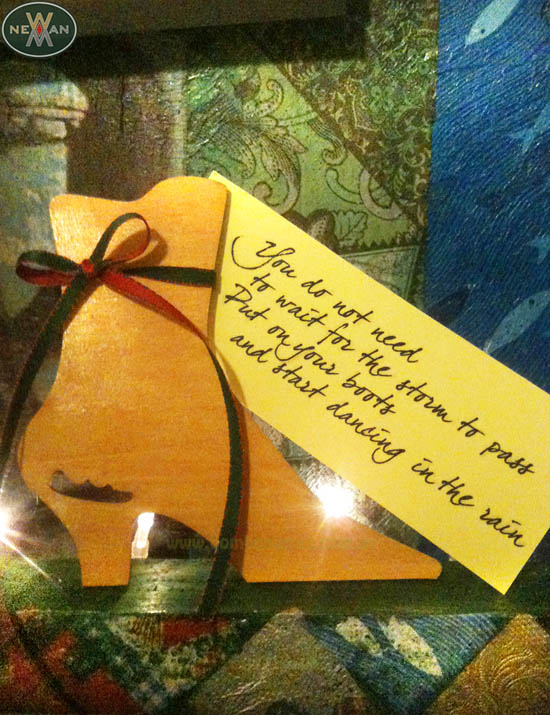 NEWMAN
You do not need
to wait for the storm to pass
Put on your boots
and start dancing in the rain